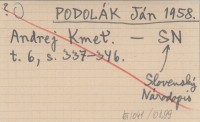 ? PODOLÁK Ján 1958.
Andrej Kmeť. — SN
t. 6, s. 337-346.
Slovenský
Národopis